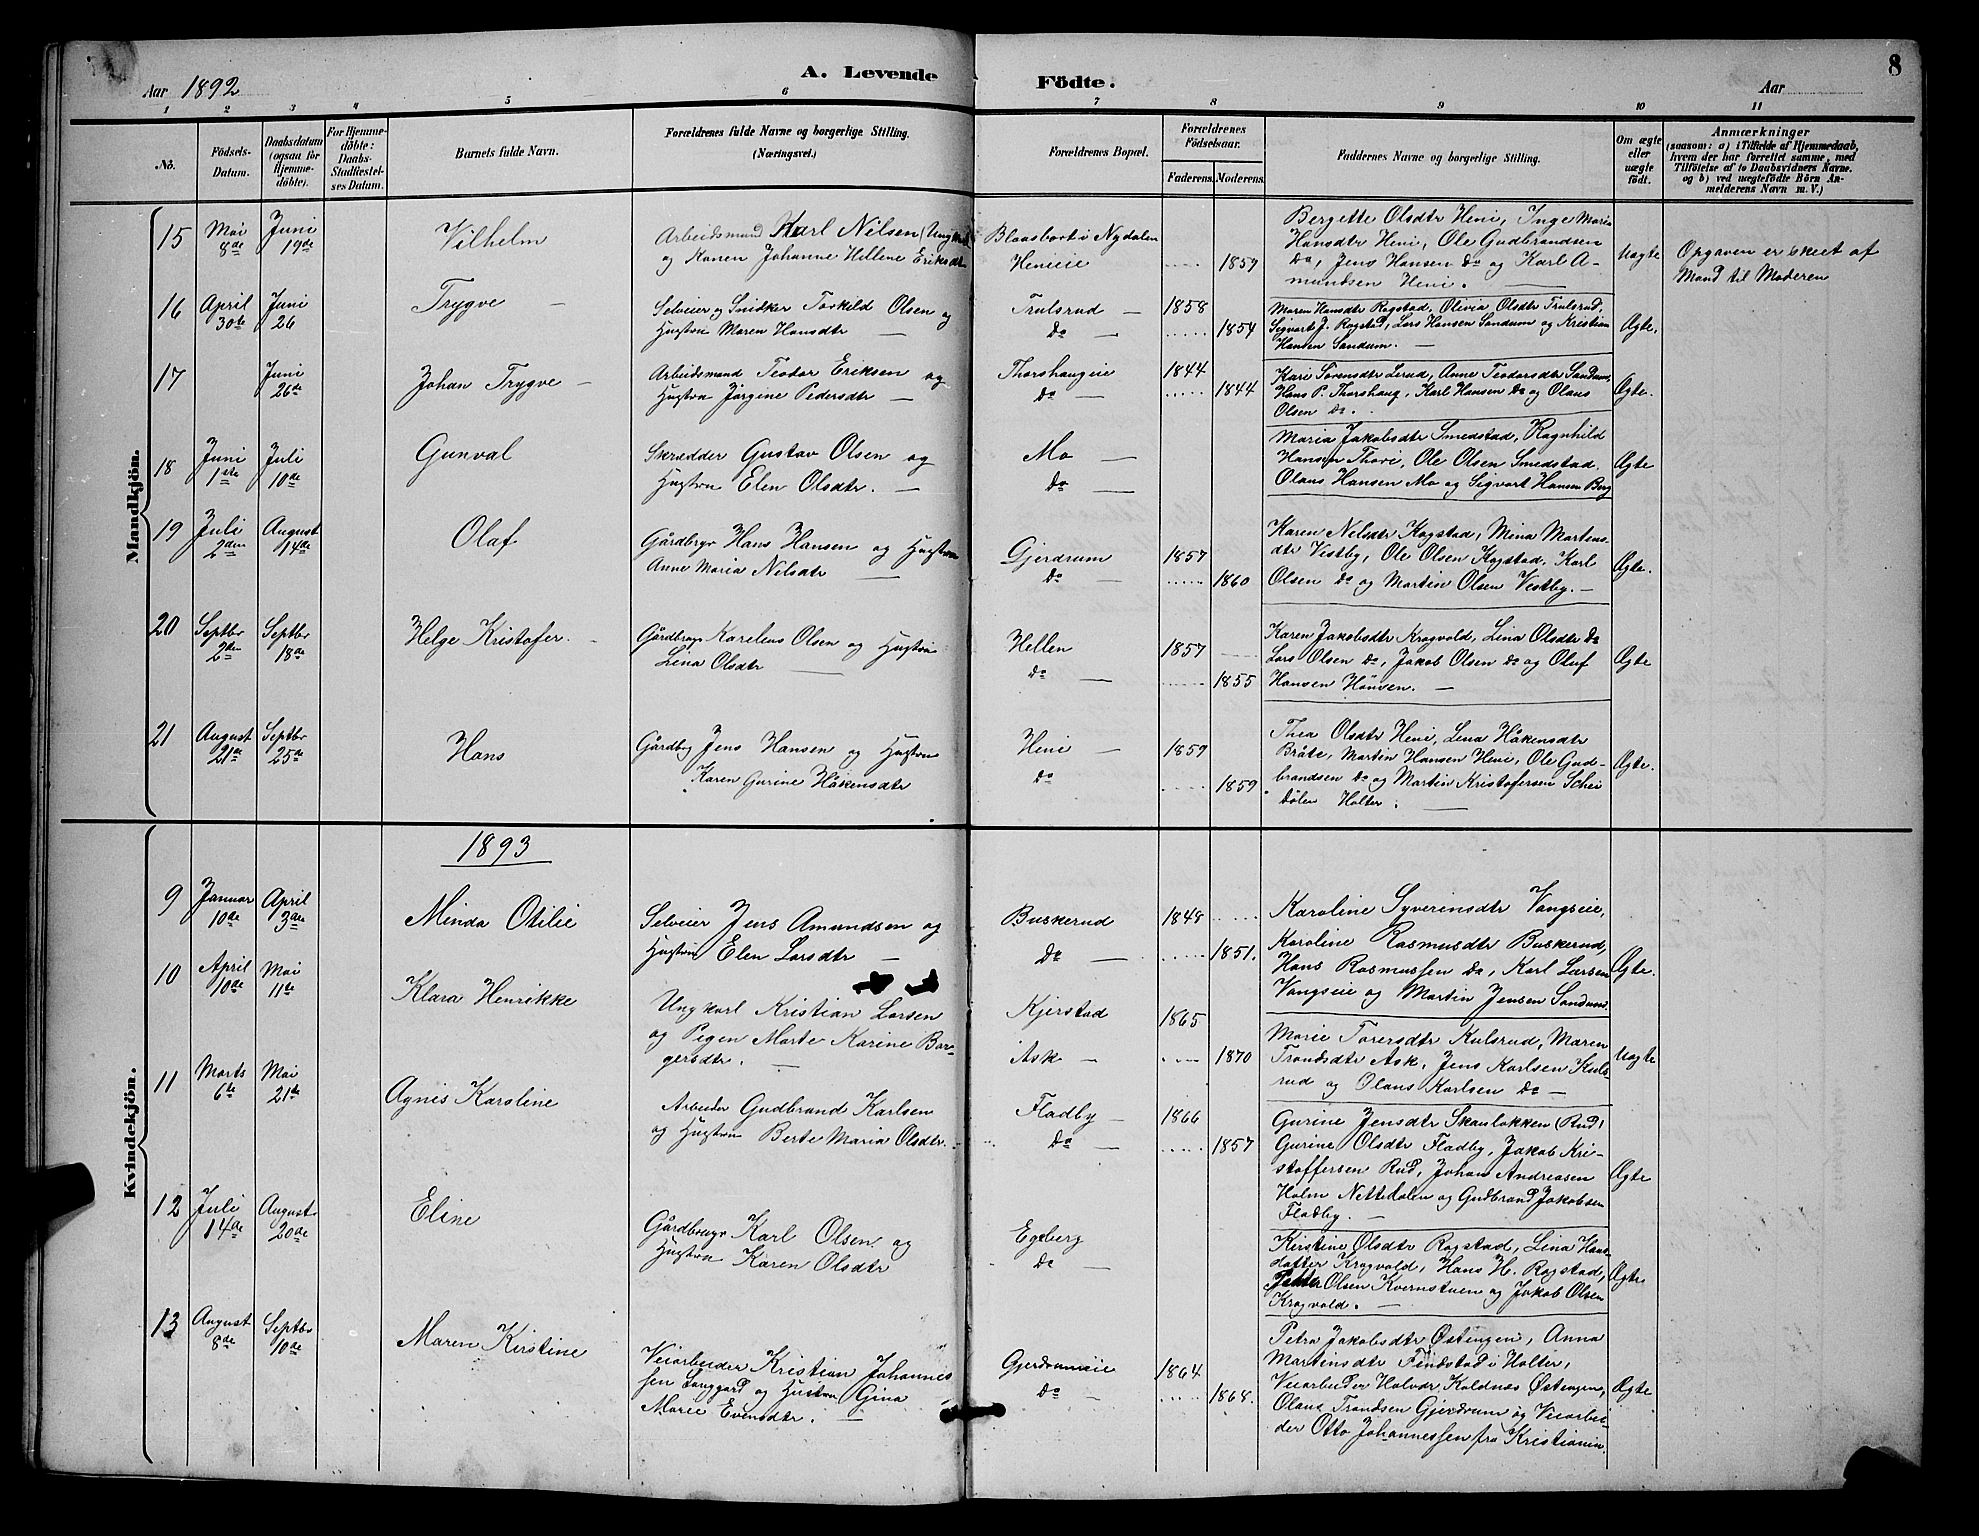 8
A. Levende Födte.
Aar 1892
Aar
1 2 3 4 5 6 7 8 9 10 11
No.
Födsels-Datum.
Daabsdatum (ogsaa for Hjemmedöbte).
For Hjemmedöbte: Daabs-Stadfæstelses Datum.
Barnets fulde Navn.
Forældrenes fulde Navne og borgerlige Stilling. (Næringsvei.)
Forældrenes Bopæl.
Forældrenes Födselsaar.
Faderens. Moderens.
Faddernes Navne og borgerlige Stilling.
Om ægte eller uægte födt.
Anmærkninger
(saasom: a) i Tilfælde af Hjemmedaab, hvem der har forrettet samme, med Tilföielse af to Daabsvidners Navne, og b) ved uægtefödte Börn Anmelderens Navn m. V.)
Mandkjön.
15 Mai 8de Juni 19de Vilhelm
Arbeidsmand Karl Nilsen (Ungkarl
og Konen Johanne Hellene Eriksdtr
Blaasbort i Nydalen
Henieie
1859
Bergette Olsdtr Heni, Inge Maria
Hansdtr Heni, Ole Gudbrandsen
Do, Jens Hansen Do og Karl A-
mundsen Heni.
Uægte
Opgaven er skeet af
Mand til Moderen
16 April 30te Juni 26 Trygve
Selveier og Snidker Torkild Olsen og
Hustru Maren Hansdtr
Trulsrud
Do
1858
1854
Maren Hansdtr Rogstad, Olivia Olsdtr Trulsrud,
Sigvart J. Rogstad, Lars Hansen Sandum og Kristian
Hansen Sandum.
Ægte.
17 Juni 26de Johan Trygve
Arbeidsmand Teodor Eriksen og
Hustru Jörgine Pedersdtr
Thorshaugeie
Do
1844
1844
Kari Sörensdtr Lerud, Anne Teodorsdtr Sandum,
Hans P. Thorshaug, Karl Hansen Do og Olaus
Olsen Do.
Ægte.
18 Juni 1ste Juli 10de Gunval
Skrædder Gustav Olsen og
Hustru Elen Olsdtr.
Mo
Do
Maria Jakobsdtr Smedstad, Ragnhild
Hansen Thori, Ole Olsen Smedstad.
Olaus Hansen Mo og Sigvart Hansen Berg
Ægte
19 Juli 2den August 14de Olaf
Gårdbrgr Hans Hansen og Hustru
Anne Maria Nilsdtr
Gjerdrum
Do
1857
1860
Karen Nilsdtr Kogstad, Mina Martens-
dtr Vestby, Ole Olsen Kogstad. Karl
Olsen Do og Martin Olsen Vestby.
Ægte.
20 Septbr 2den Septbr 18de Helge Kristofer.
Gårdbrgr Karelius Olsen og Hustru
Lina Olsdtr
Hellen
Do
1857
1855
Karen Jakobsdtr Krogvold, Lina Olsdtr Do
Lars Olsen Do, Jakob Olsen Do og Oluf
Hansen Hönsen.
Ægte
21 August 21de Septbr 25de Hans
Gårdbrg Jens Hansen og Hustru
Karen Gurine Håkensdtr
Heni
Do
1859
1859
Thea Olsdtr Heni, Lina Håkensdtr
Bråte, Martin Hansen Heni, Ole Gud-
brandsen Do og Martin Kristofersen Schei
dölen Holter.
Ægte.
Kvindekjön.
1893
9 Januar 10de April 3die Minda Otilie
Selveier Jens Amundsen og
Hustru Elen Larsdtr
Buskerud
Do
1848
1851.
Karoline Syverinsdtr Vangseie,
Karoline Rasmusdtr Buskerud,
Hans Rasmussen Do, Karl Larsen
Vangseie og Martin Jensen Sandum.
Ægte.
10 April 10de Mai 11te Klara Henrikke
Ungkarl Kristian Larsen
og Pigen Marte Karine Bor-
gersdtr.
Kjerstad
Ask
1865
1870
Marie Torersdtr Kulsrud, Maren
Trondsdtr Ask, Jens Karlsen Kuls-
rud og Olaus Karlsen Do
Uægte
11 Marts 6te Mai 21de Agnis Karoline
Arbeider Gudbrand Karlsen
og Hustru Berte Maria Olsdtr.
Fladby
Do
1866
1857
Gurine Jensdtr Skaulökken (Rud)
Gurine Olsdtr Fladby, Jakob Kri-
stoffersen Rud, Johan Andreasen
Holm Nettedalen og Gudbrand Jakobsen
Fladby.
Ægte
12 Juli 14de August 20de Eline
Gårdbrugr Karl Olsen og
Hustru Karen Olsdtr
Egeberg
Do
Kirstine Olsdtr Rogstad, Lina Hans-
datter Krogvold, Hans H. Rogstad,
Petter Olsen Kvernstuen og Jakob Olsen
Krogvold.
Ægte
13 August 8de Septbr 10de Maren Kirstine
Veiarbeider Kristian Johannes
sen Langgard og Hustru Gina
Marie Evensdtr.
Gjerdrumeie
Do
1864
1868.
Petra Jakobsdtr Östengen, Anna
Martinsdtr Findstad i Holter,
Veiarbeider Halvor Koldnæs Östengen,
Olaus Trondsen Gjerdrum og Veiarbei-
der Otto Johannessen fra Kristiania
Ægte